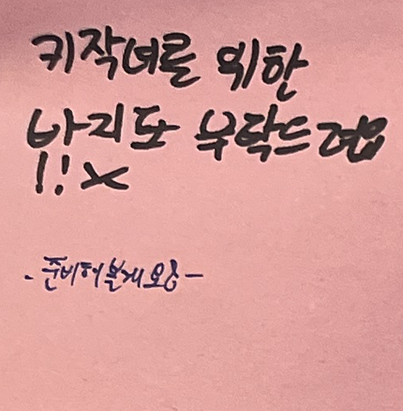 키작녀를 위한
바지또 부탁드려욥
!!x
- 준비해볼게요용 -